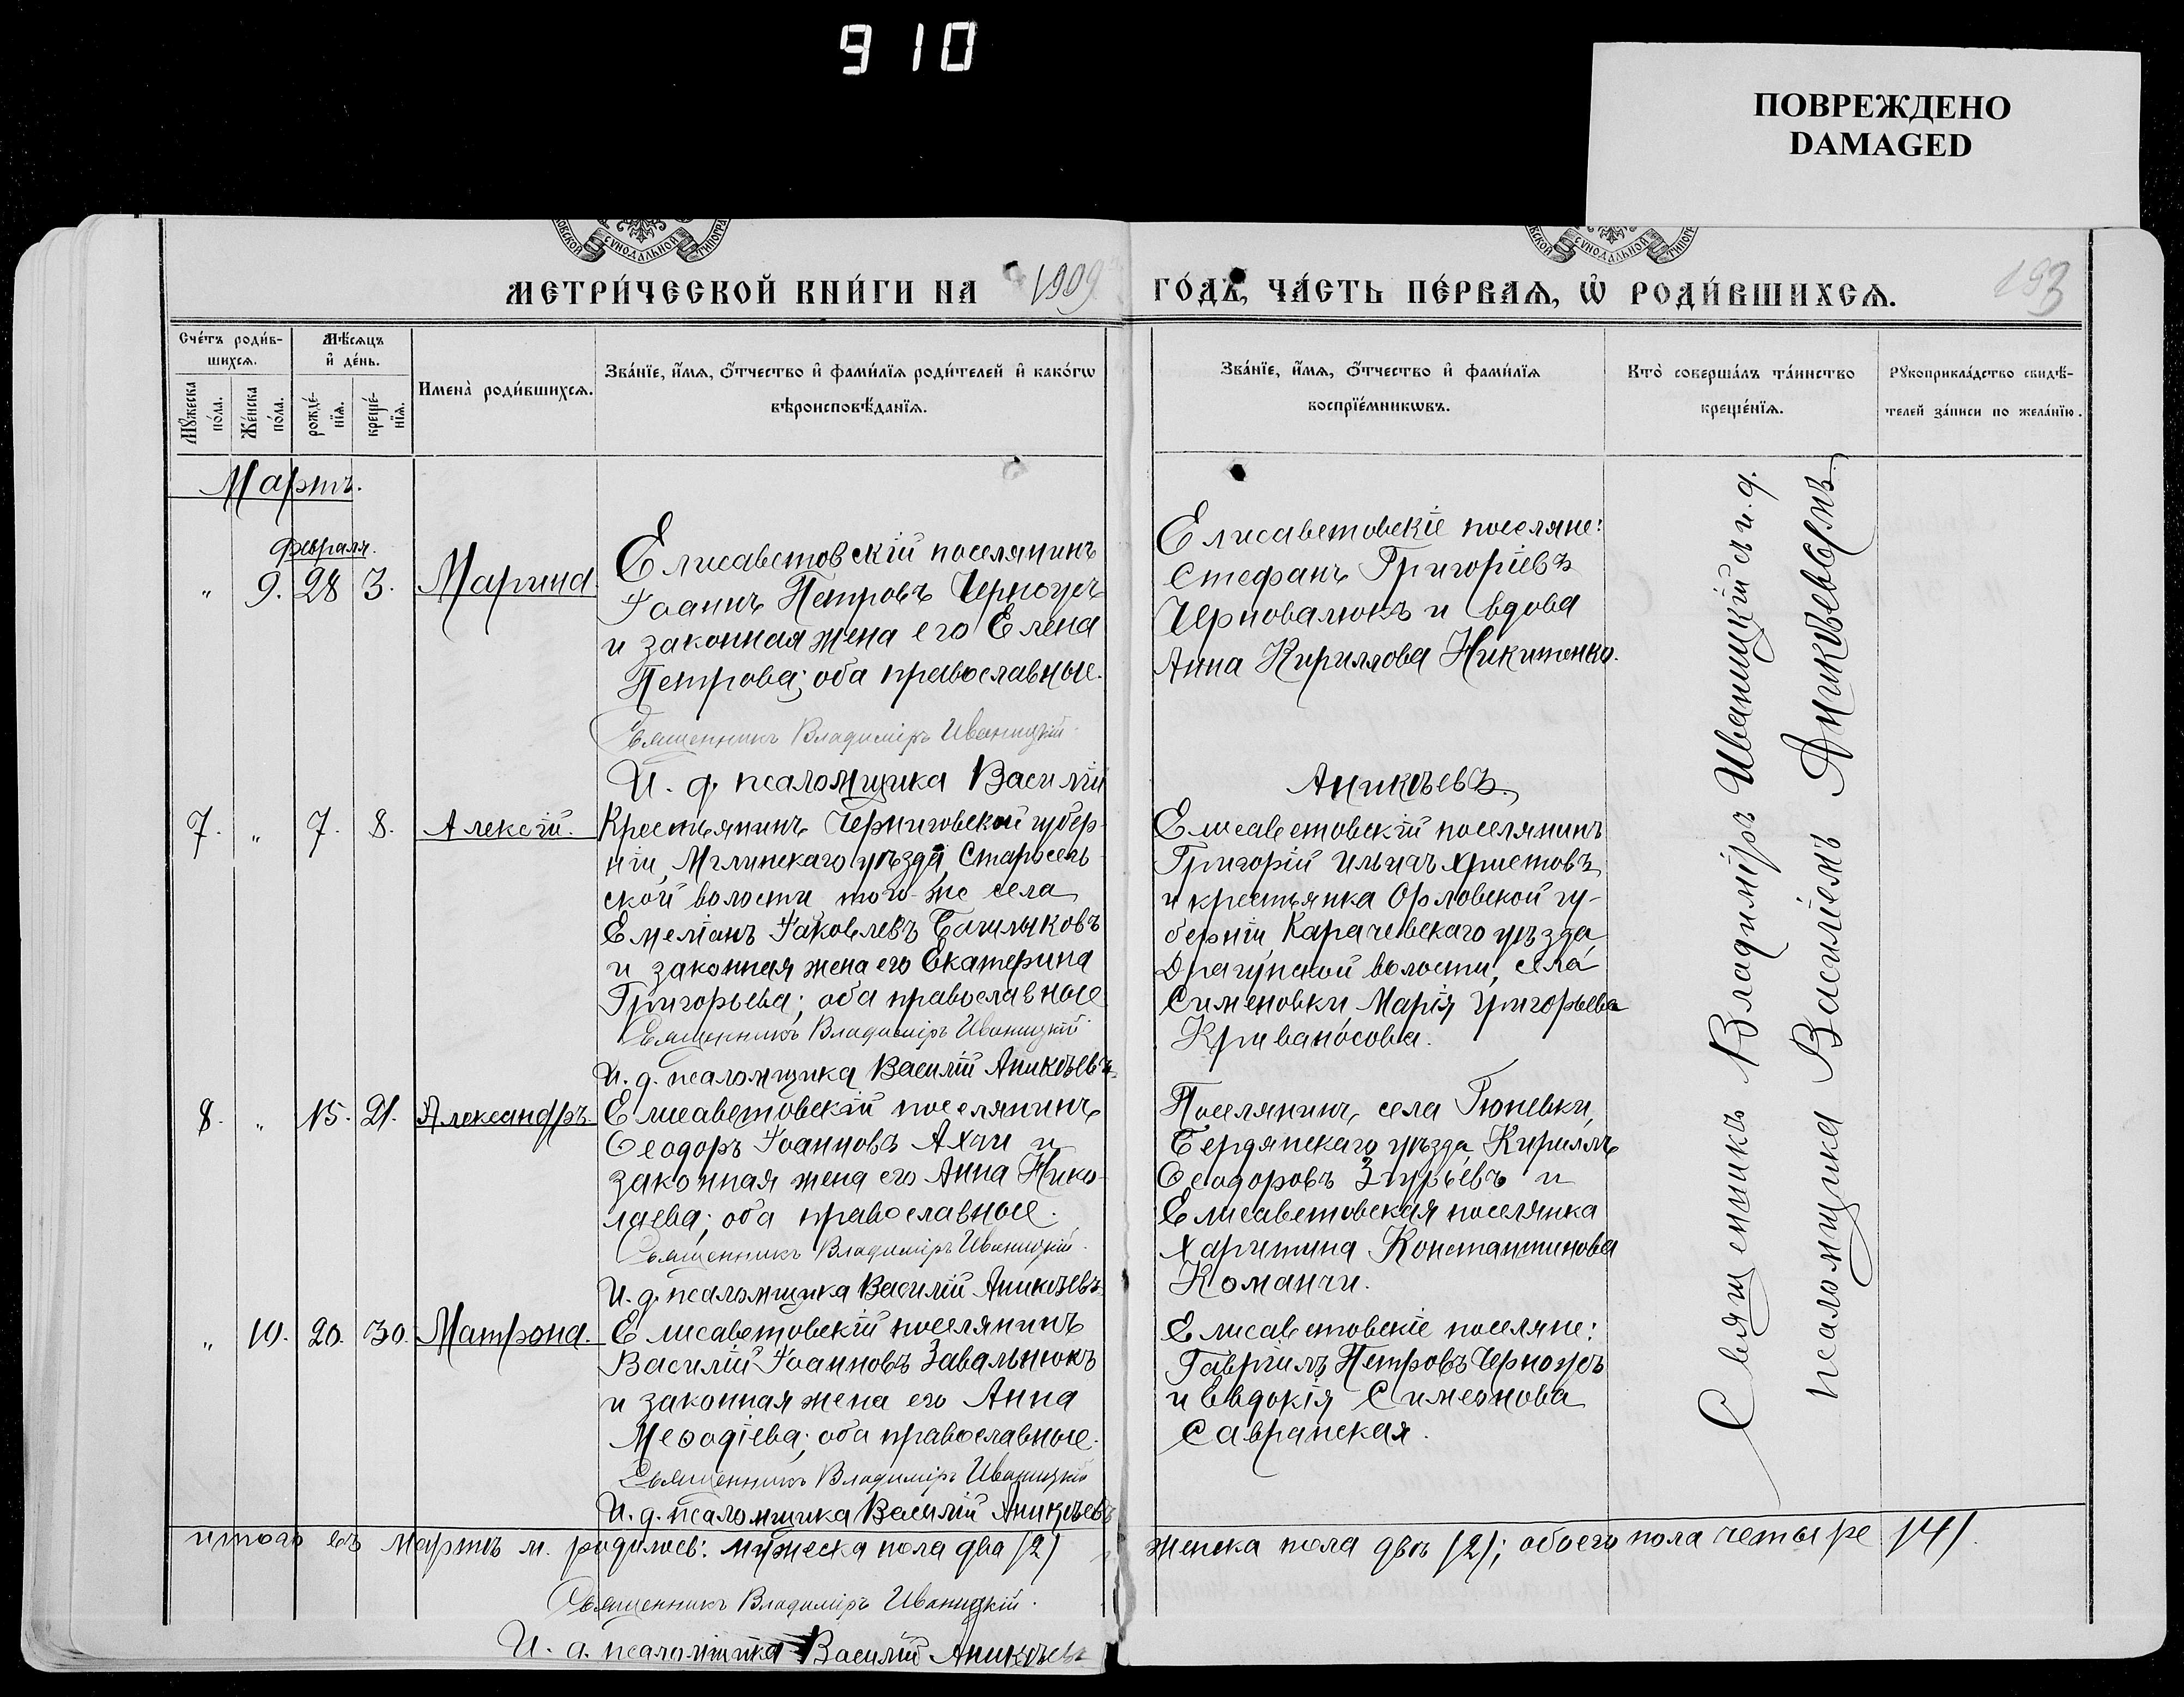 910
ПОВРЕЖДЕНО
DAMAGED
МЕТРИ́ЧЕСКОЙ КНИ́ГИ НА 1909 ГО́ДЪ, ЧА́СТЬ ПЕ́РВАЯ, Ѡ҆ РОДИ́ВШИХСѦ.
193
Сче́тъ роди́в-
шихсѧ.
Мѣ́сѧцъ
и҆ де́нь.
Мꙋ́жеска
по́ла.
Же́нска
по́ла.
рожде́-
нїѧ.
креще́-
нїѧ.
Имена̀ роди́вшихсѧ.
Зва́нїе, и҆́мѧ, ѻ҆́тчество и҆ фами́лїѧ роди́телей и҆ како́гѡ
вѣроисповѣ́данїѧ.
Зва́нїе, и҆́мѧ, ѻ҆́тчество и҆ фами́лїѧ
воспрїе́мникѡвъ.
Кто̀ соверша́лъ та́инство
креще́нїѧ.
Рꙋкоприкла́дство свидѣ́-
телей за́писи по жела́нїю.
Мартъ.
Февраля.
" 9. 28 3. Марина.
Елисаветовскій поселянинъ
Іоаннъ Петровъ Черноусъ
и законная жена его Елена
Петрова; оба православные.
Священникъ Владиміръ Иваницкій.
И. д. псаломщика Василій Аникѣевъ.
Елисаветовскіе поселяне:
Стефанъ Григоріевъ
Черновалюкъ и вдова
Анна Кириллова Никитенко.
7. " 7. 8. Алексій.
Крестьянинъ Черниговской губер-
ніи, Мглинскаго уѣзда, Старосель-
ской волости того-же села
Емеліанъ Іаковлевъ
и законная жена его Екатерина
Григорьева; оба православные
Священникъ Владиміръ Иваницкій
И. д. псаломщика Василій Аникѣевъ.
Елисаветовскій поселянинъ
Григорій Ильичъ Христовъ
и крестьянка Орловской гу-
берніи, Карачевскаго уѣзда,
Драгунской волости, села
Сименовки, Марія Григорьева
Криваносова.
8. " 15. 21. Александръ.
Елисаветовскій поселянинъ
Ѳеодоръ Іоанновъ Ахчи и
законная жена его Анна Нико-
лаева; оба православные.
Священникъ Владиміръ Иваницкій.
И. д. псаломщика Василій Аникѣевъ.
Поселянинъ, села Гюневки,
Бердянскаго уѣзда, Кириллъ
Ѳеодоровъ Згурьевъ и
Елисаветовская поселянка
Харитина Константинова
Команчи.
" 10. 20. 30. Матрона.
Елисаветовскій поселянинъ
Василій Іоанновъ Завальнюкъ
и законная жена его Анна
Меѳодіева; оба православные.
Священникъ Владиміръ Иваницкій
И. д. псаломщика Василій Аникѣевъ
Елисаветовскіе поселяне:
Гавріилъ Петровъ Черноусъ
и Евдокія Симеонова
Савранская.
Священникъ Владиміръ Иваницкій съ и. д.
псаломщика Василіемъ Аникѣевымъ.
итого въ мартѣ м. родилось: мужеска пола два /2/ женска пола двѣ /2/; обоего пола четыре /4/.
Священникъ Владиміръ Иваницкій.
И. д. псаломщика Василій Аникѣевъ